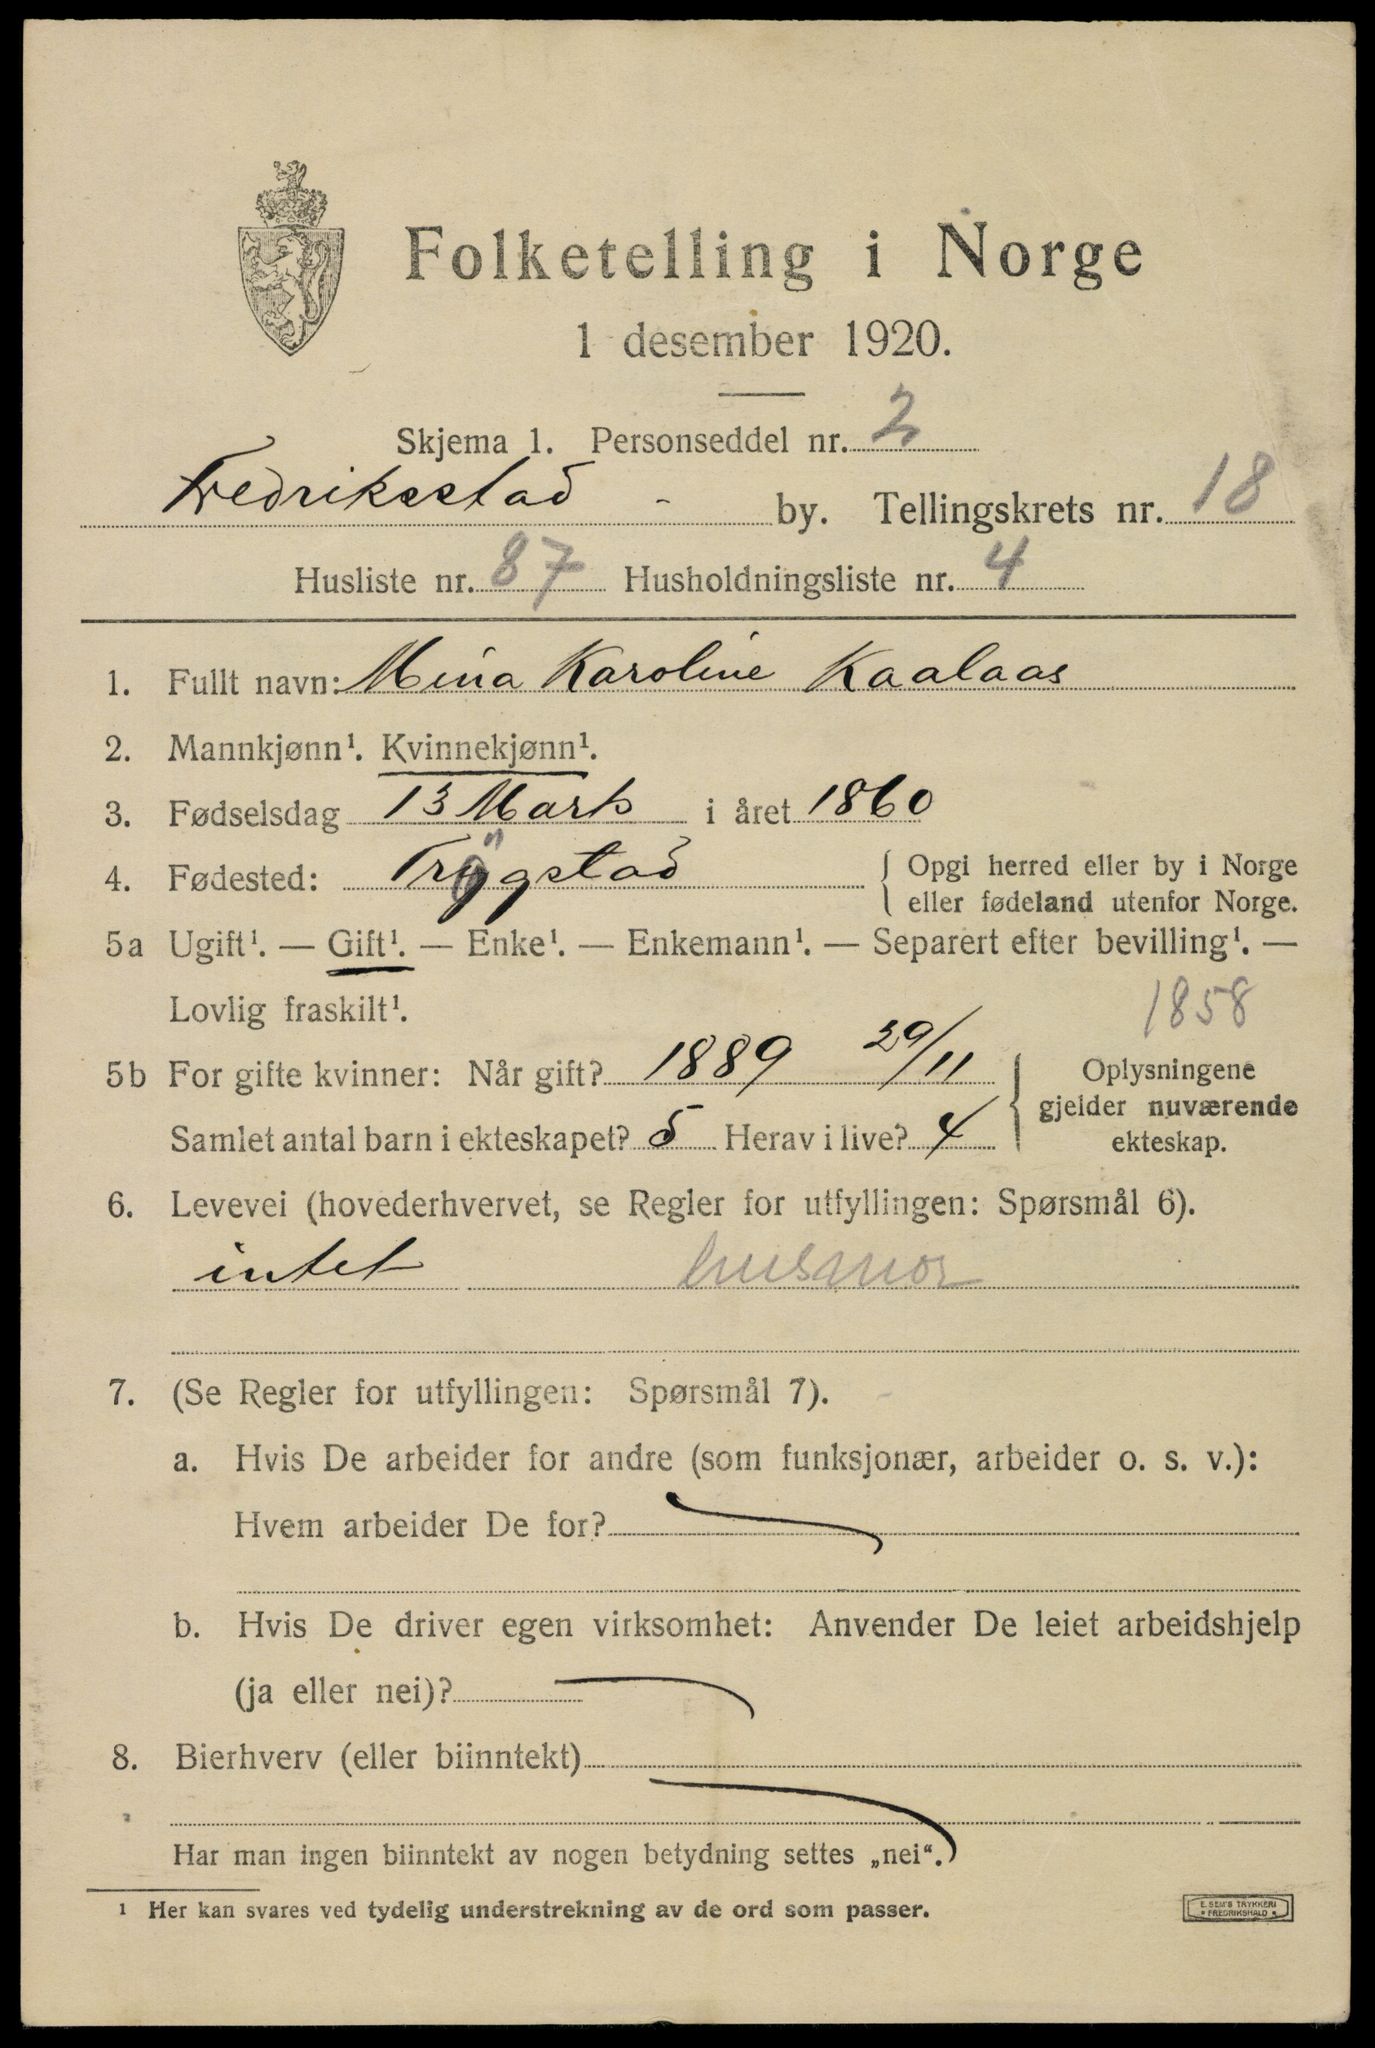 Folketelling i Norge
1 desember 1920.
Skjema 1. Personseddel nr. 2
Fredriksstad by. Tellingskrets nr. 18
Husliste nr. 87 Husholdningsliste nr. 4
1. Fullt navn: Mina Karoline Kaalaas
2. Mannkjønn¹. Kvinnekjønn¹.
3. Fødselsdag 13 Marts i året 1860
4. Fødested: Trøgstad { Opgi herred eller by i Norge
eller fødeland utenfor Norge.
5a Ugift¹. — Gift¹. — Enke¹. — Enkemann¹. — Separert efter bevilling¹. —
Lovlig fraskilt¹. 1858
5b For gifte kvinner: Når gift? 1889 29/11 { Oplysningene
gjelder nuværende
Samlet antal barn i ekteskapet? 5 Herav i live? 4 ekteskap.
6. Levevei (hovederhvervet, se Regler for utfyllingen: Spørsmål 6).
intet husmor
7. (Se Regler for utfyllingen: Spørsmål 7).
a. Hvis De arbeider for andre (som funksjonær, arbeider o. s. v.):
Hvem arbeider De for?
b. Hvis De driver egen virksomhet: Anvender De leiet arbeidshjelp
(ja eller nei)?
8. Bierhverv (eller biinntekt)
Har man ingen biinntekt av nogen betydning settes „nei“.
¹ Her kan svares ved tydelig understrekning av de ord som passer.
E. SEM'S TRYKKERI
* FREDRIKSHALD *